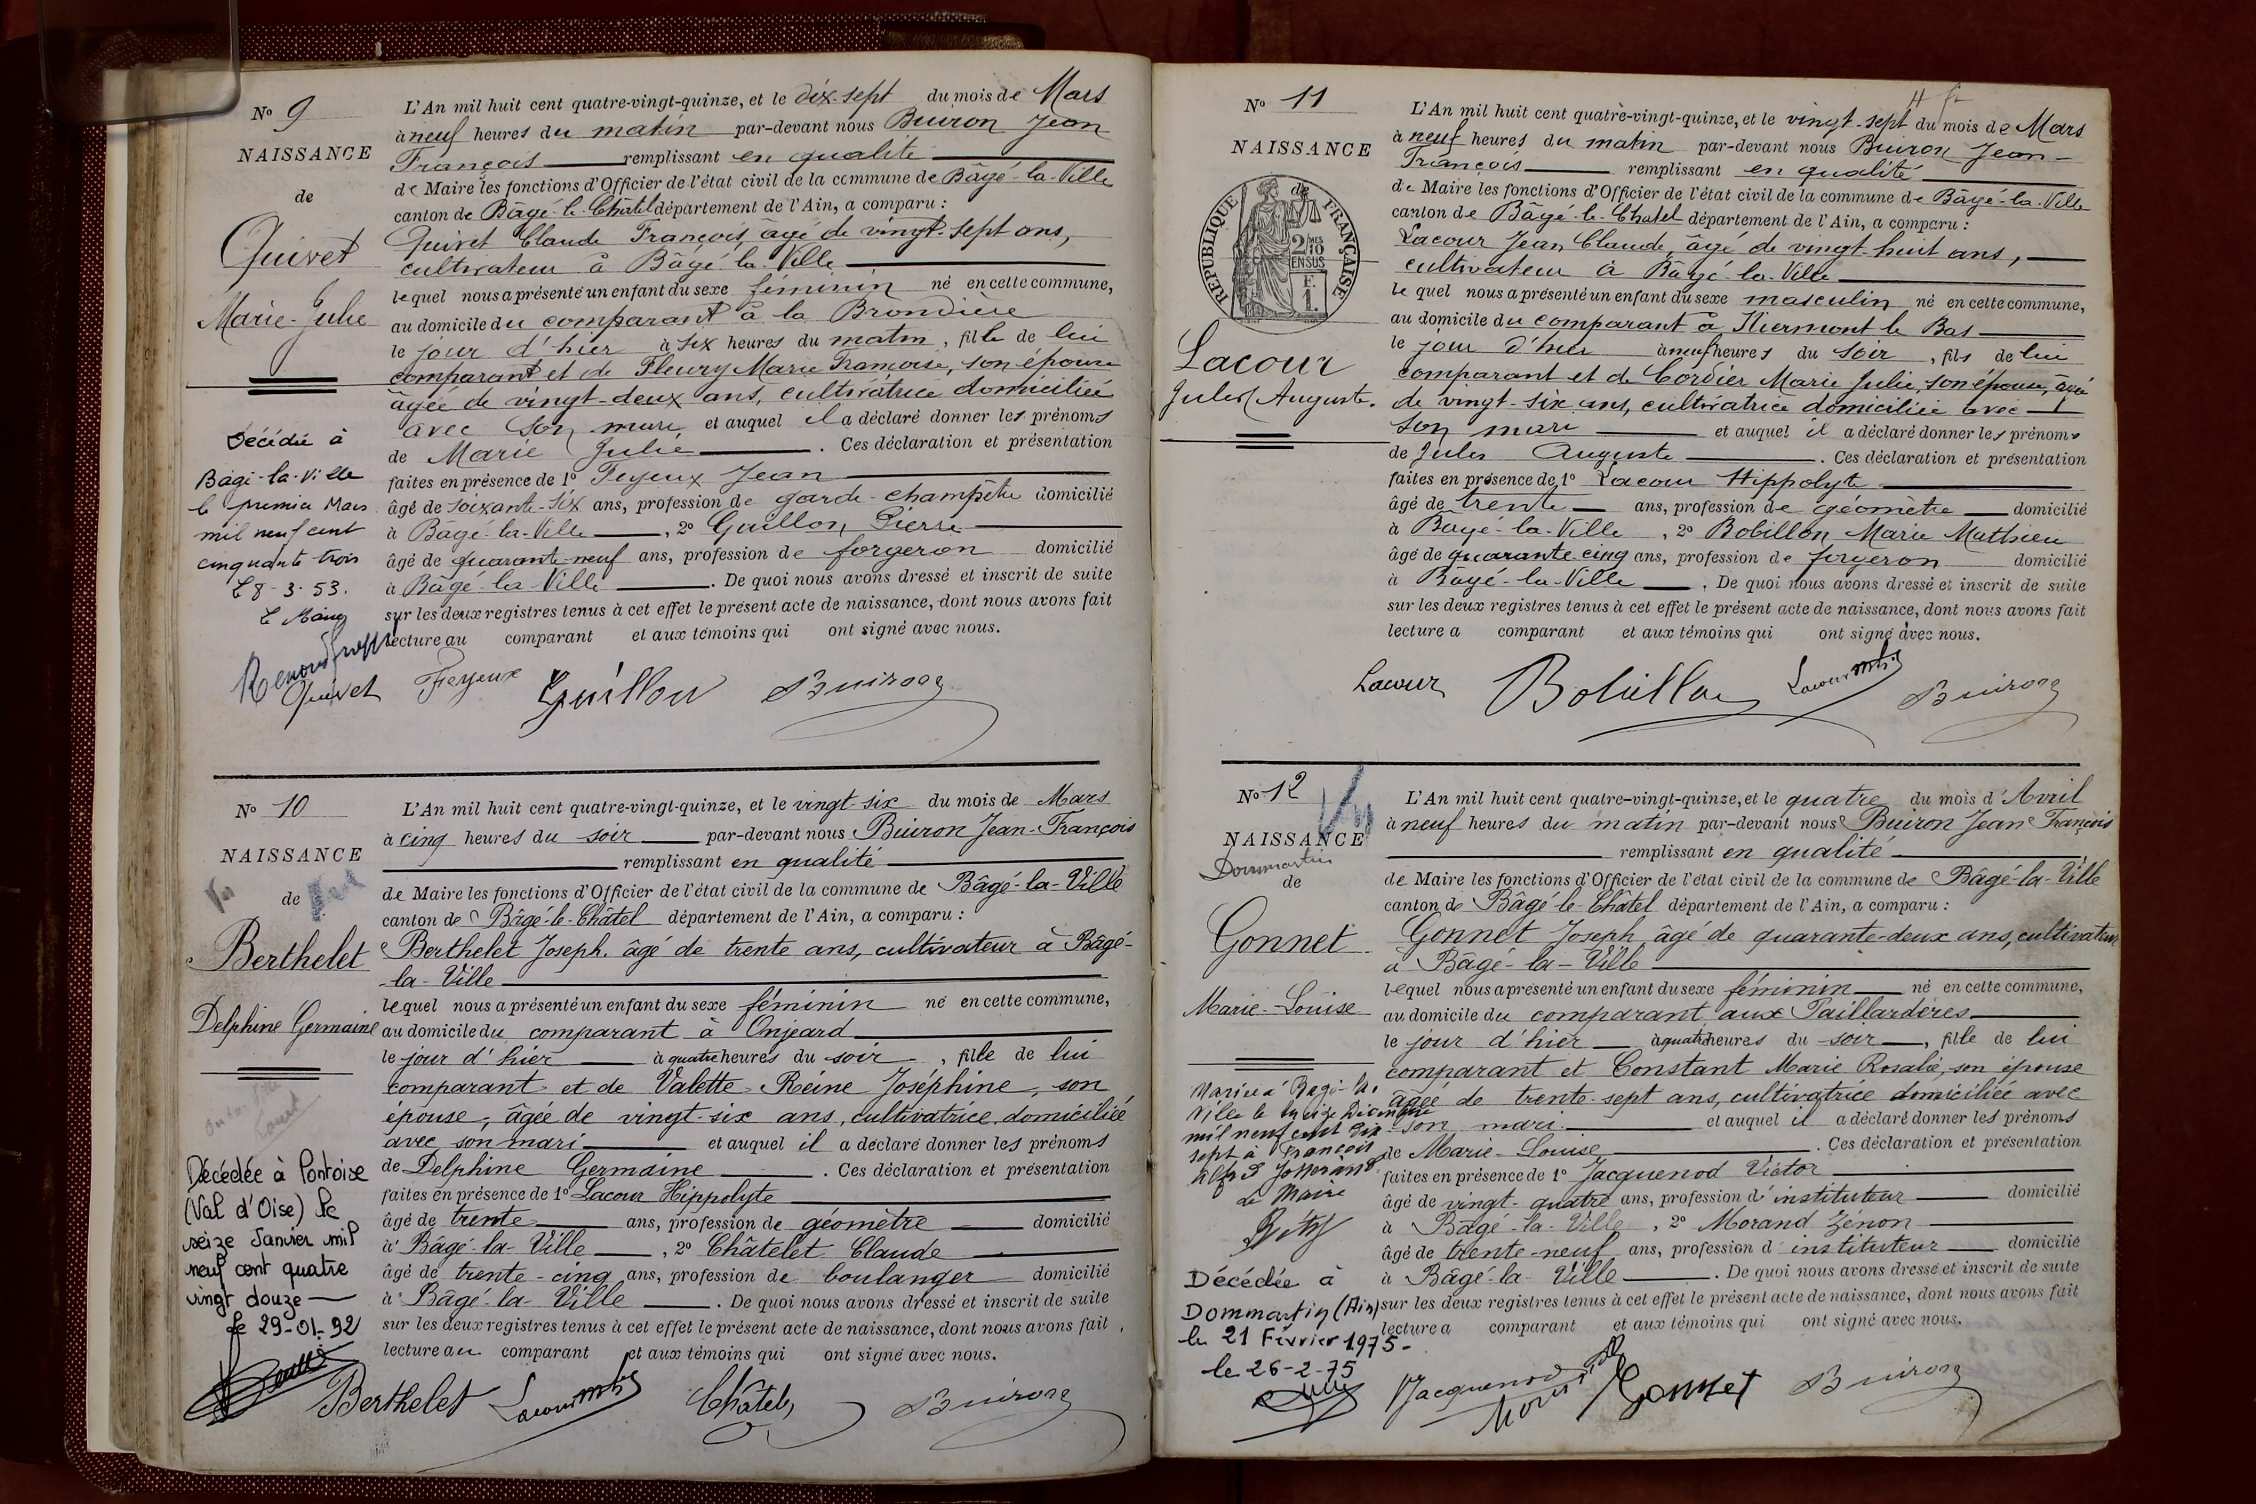 No 9
NAISSANCE
de
Quivet
Marie-Julie
Décédée à
Bâgé-la-Ville
le premier Mars
mil neuf cent
cinquante trois
Le 8-3-53.
Le Maire
L'An mil huit cent quatre-vingt-quinze, et le dix-sept du mois de Mars
à neuf heures du matin par-devant nous Buiron Jean
François remplissant en qualité
de Maire les fonctions d'Officier de l'état civil de la commune de Bâgé-la-Ville
canton de Bâgé-le-Châtel département de l'Ain, a comparu :
Quivet Claude François, âgé de vingt-sept ans,
cultivateur à Bâgé-la-Ville
lequel nous a présenté un enfant du sexe féminin né en cette commune,
au domicile du comparant à la Brondière
le jour d'hier à six heures du matin, fille de lui
comparant et de Fleury Marie Françoise, son épouse
âgée de vingt-deux ans, cultivatrice domiciliée
avec son mari et auquel il a déclaré donner les prénoms
de Marie Julie. Ces déclaration et présentation
faites en présence de 1° Feyeux Jean
âgé de soixante-six ans, profession de garde-champêtre domicilié
à Bâgé-la-Ville, 2° Guillon Pierre
âgé de quarante-neuf ans, profession de forgeron domicilié
à Bâgé-la-Ville. De quoi nous avons dressé et inscrit de suite
sur les deux registres tenus à cet effet le présent acte de naissance, dont nous avons fait
lecture au comparant et aux témoins qui ont signé avec nous.
Quivet Feyeux Guillon Buiron
No 10
NAISSANCE
de
Berthelet
Delphine Germaine
Décédée à Pontoise
(Val d'Oise) le
seize Janvier mil
neuf cent quatre
vingt douze
le 29-01-92
L'An mil huit cent quatre-vingt-quinze, et le vingt-six du mois de Mars
à cinq heures du soir par-devant nous Buiron Jean-François
remplissant en qualité
de Maire les fonctions d'Officier de l'état civil de la commune de Bâgé-la-Ville
canton de Bâgé-le-Châtel département de l'Ain, a comparu :
Berthelet Joseph, âgé de trente ans, cultivateur à Bâgé-
-la-Ville
lequel nous a présenté un enfant du sexe féminin né en cette commune,
au domicile du comparant à Onjeard
le jour d'hier à quatre heures du soir, fille de lui
comparant et de Valette Reine Joséphine, son
épouse, âgée de vingt-six ans, cultivatrice domiciliée
avec son mari et auquel il a déclaré donner les prénoms
de Delphine Germaine. Ces déclaration et présentation
faites en présence de 1° Lacour Hippolyte
âgé de trente ans, profession de géomètre domicilié
à Bâgé-la-Ville, 2° Châtelet Claude
âgé de trente-cinq ans, profession de boulanger domicilié
à Bâgé-la-Ville. De quoi nous avons dressé et inscrit de suite
sur les deux registres tenus à cet effet le présent acte de naissance, dont nous avons fait
lecture au comparant et aux témoins qui ont signé avec nous.
Berthelet Lacour Châtelet Buiron
No 11
NAISSANCE
de
RÉPUBLIQUE FRANÇAISE
2 MES 10 EN SUS
F. 1.
Lacour
Jules Auguste.
L'An mil huit cent quatre-vingt-quinze, et le vingt-sept du mois de Mars
à neuf heures du matin par-devant nous Buiron Jean-
François remplissant en qualité
de Maire les fonctions d'Officier de l'état civil de la commune de Bâgé-la-Ville
canton de Bâgé-le-Chatel département de l'Ain, a comparu :
Lacour Jean Claude, âgé de vingt-huit ans,
cultivateur à Bâgé-la-Ville
lequel nous a présenté un enfant du sexe masculin né en cette commune,
au domicile du comparant à le Bas
le jour d'hier à neuf heures du soir, fils de lui
comparant et de Cordier Marie Julie, son épouse, âgée
de vingt-six ans, cultivatrice domiciliée avec
son mari et auquel il a déclaré donner les prénoms
de Jules Auguste. Ces déclaration et présentation
faites en présence de 1° Lacour Hippolyte
âgé de trente ans, profession de géomètre domicilié
à Bâgé-la-Ville, 2° Bobillon Marie Mathieu
âgé de quarante cinq ans, profession de forgeron domicilié
à Bâgé-la-Ville. De quoi nous avons dressé et inscrit de suite
sur les deux registres tenus à cet effet le présent acte de naissance, dont nous avons fait
lecture a comparant et aux témoins qui ont signé avec nous.
Lacour Bobillon Lacour Buiron
No 12
NAISSANCE
Dommartin
de
Gonnet
Marie-Louise
Mariée à Bâgé-la-
Ville le treize Décembre
mil neuf cent dix-
sept à François
le Maire
Décédée à
Dommartin (Ain)
le 21 Février 1975-
le 26-2-75
L'An mil huit cent quatre-vingt-quinze, et le quatre du mois d'Avril
à neuf heures du matin par-devant nous Buiron Jean François
remplissant en qualité
de Maire les fonctions d'Officier de l'état civil de la commune de Bâgé-la-Ville
canton de Bâgé-le-Châtel département de l'Ain, a comparu :
Gonnet Joseph âgé de quarante-deux ans, cultivateur
à Bâgé-la-Ville
lequel nous a présenté un enfant du sexe féminin né en cette commune,
au domicile du comparant aux Paillardères
le jour d'hier à quatre heures du soir, fille de lui
comparant et Constant Marie Rosalie, son épouse
âgée de trente-sept ans, cultivatrice domiciliée avec
son mari et auquel il a déclaré donner les prénoms
de Marie-Louise. Ces déclaration et présentation
faites en présence de 1° Jacquenod Victor
âgé de vingt-quatre ans, profession d'instituteur domicilié
à Bâgé-la-Ville, 2° Morand Zénon
âgé de trente-neuf ans, profession d'instituteur domicilié
à Bâgé-la-Ville. De quoi nous avons dressé et inscrit de suite
sur les deux registres tenus à cet effet le présent acte de naissance, dont nous avons fait
lecture a comparant et aux témoins qui ont signé avec nous.
Jacquenod Morand Gonnet Buiron